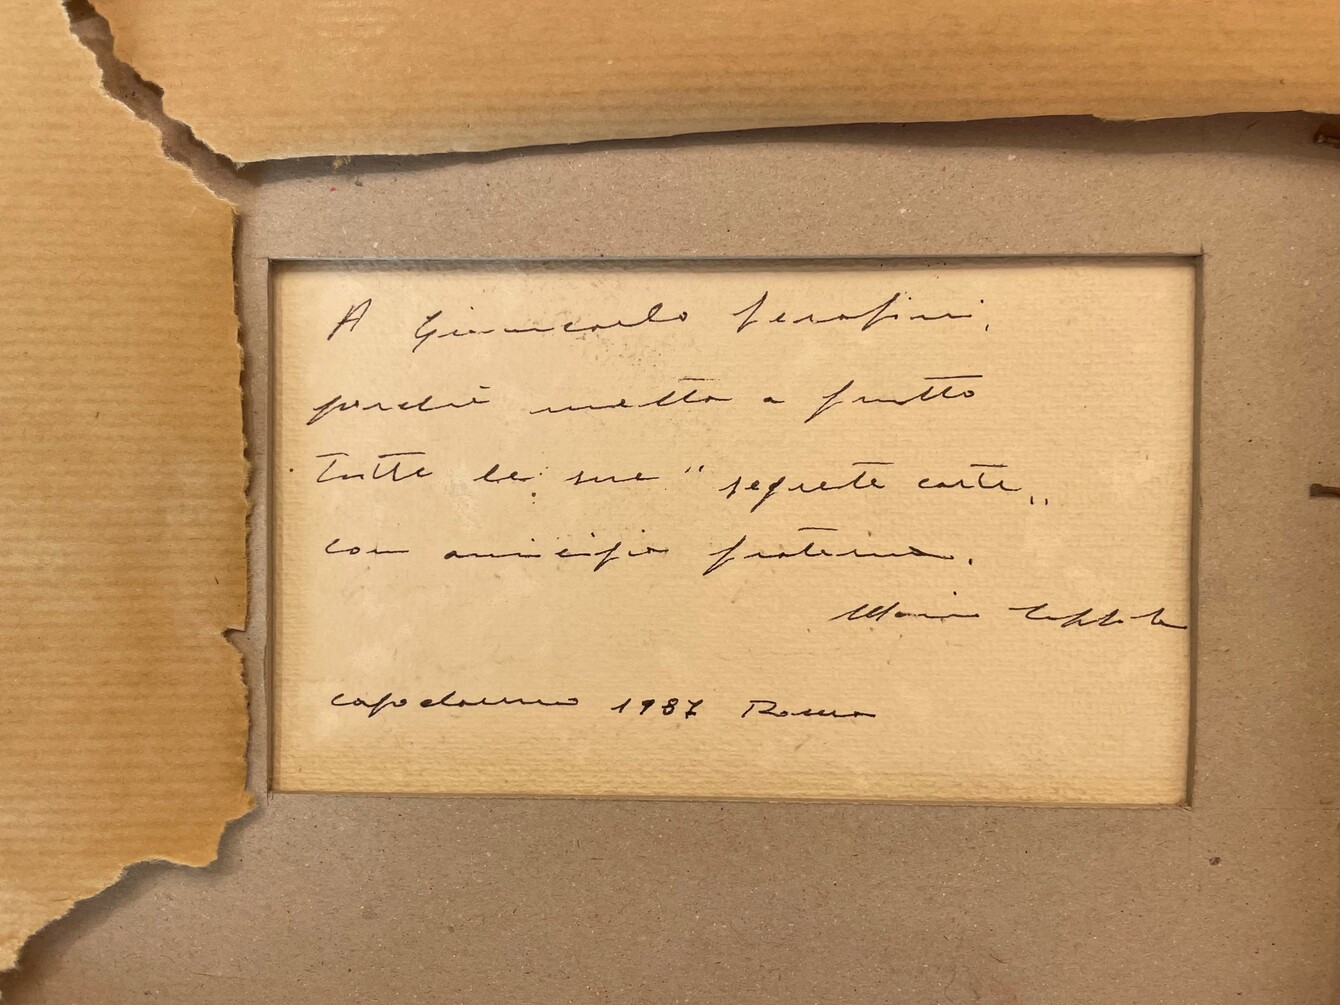 A Giancarlo Serafini,
perché metta a frutto
tutte le sue "segrete carte"
con amicizia fraterna.
Mario
capodanno 1987 Roma